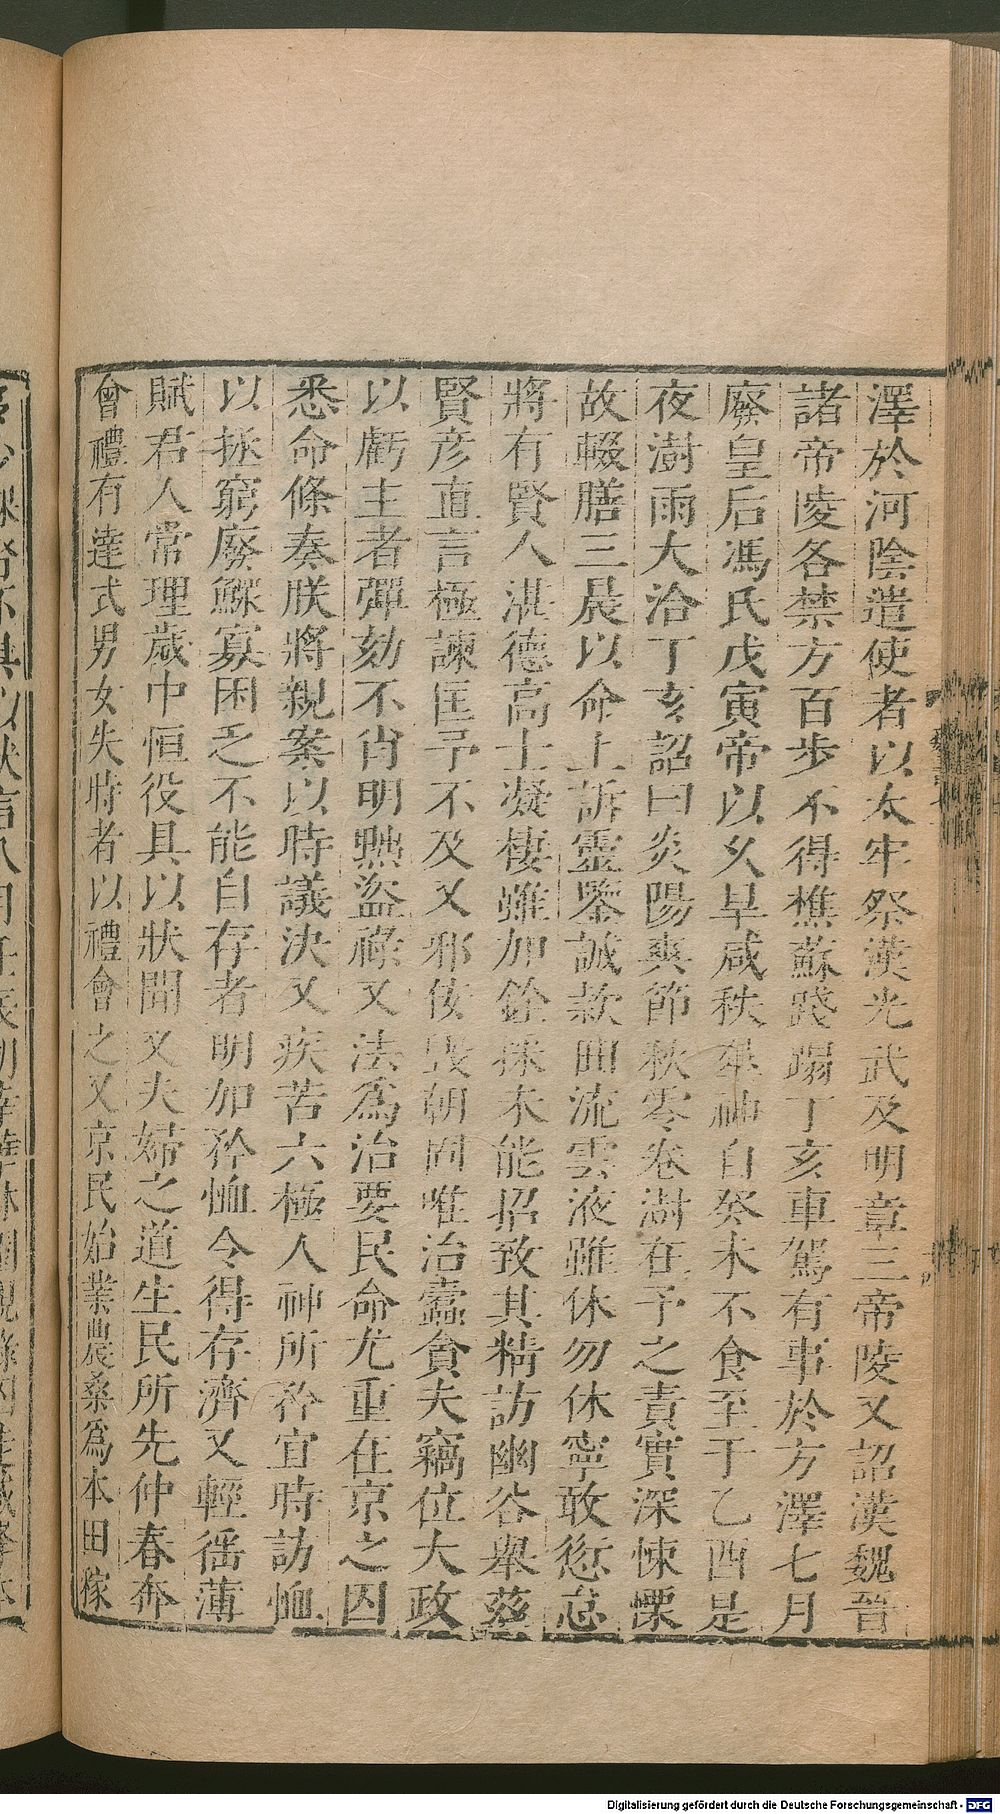 澤於河陰遣使者以太牢祭漢光武及明章三帝陵又詔漢魏晉
諸帝陵各禁方百步不得樵蘇踐蹋丁亥車駕有事於方澤七月
廢皇后馮氏戊寅帝以久旱咸秩羣神自癸未不食至于乙酉是
夜澍雨大洽丁亥詔曰炎陽爽節秋零卷澍在予之責實深悚慄
故輟膳三晨以命上訴靈鑒誠款曲流雲液雖休勿休寧敢愆怠
將有賢人湛德高士凝棲雖加銓採未能招致其精訪幽谷舉茲
賢彦直言極諫匡予不及又邪佞毀朝固唯治蠹貪夫竊位大政
以虧主者彈劾不肖明黜盜祿又法爲治要民命尤重在京之囚
悉命條奏朕將親案以時議決又疾苦六極人神所矜宜時訪恤
以拯窮廢鰥寡困乏不能自存者明加矜恤令得存濟又輕徭薄
賦君人常理歲中恒役具以狀聞又夫婦之道生民所先仲春奔
會禮有達式男女失時者以禮會之又京民始業農桑爲本田稼
Digitalisierung gefördert durch die Deutsche Forschungsgemeinschaft - DFG